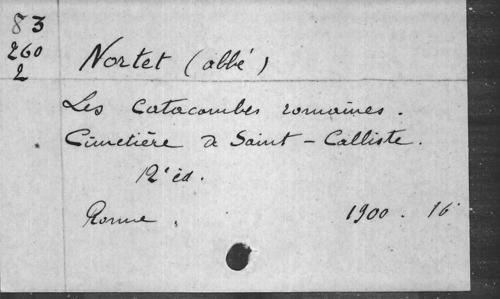 83
260
2
Nortet (abbé)
Les Catacombes romaines.
Cimetière de Saint-Calliste.
12e éd.
Rome, 1900. 16°